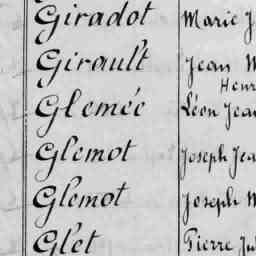 Giradot Marie J
Girault Jean M
Henri
Glemée Léon Jea
Glemot Joseph Jea
Glemot Joseph M
Glet Pierre Ju